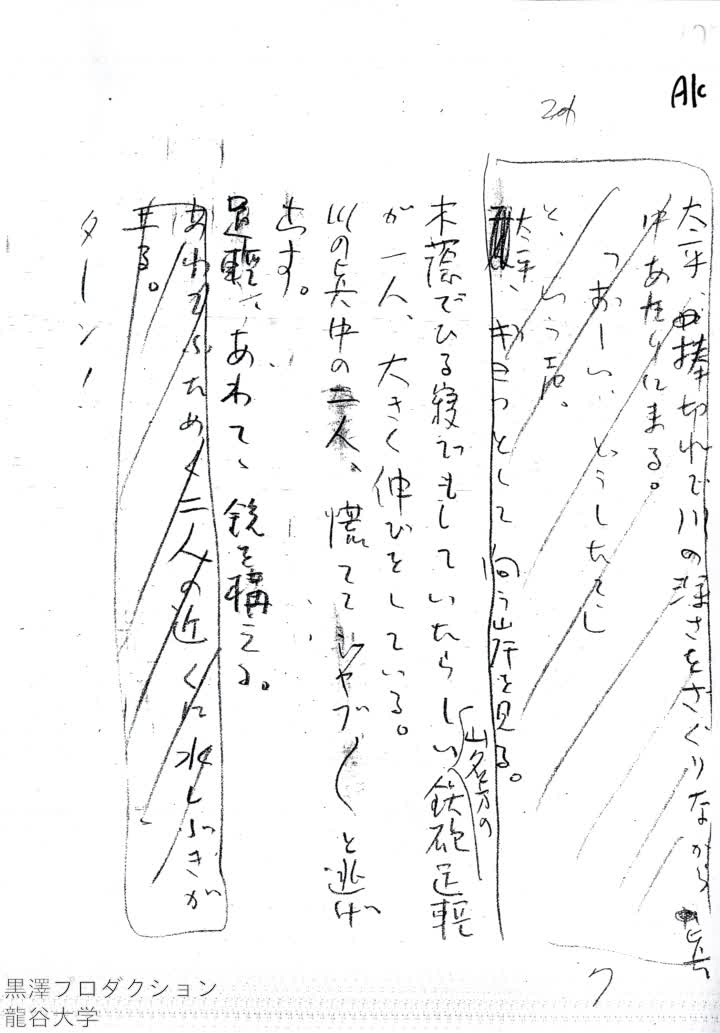 A/c
太平、棒切れで川の深さをさぐりながら
中あたりにまる。
「おーい、どうしたてし
と、いう声。
太平、ギョッとして向う岸を見る。
木蔭でひる寝でもしていたらしい山名方の鉄砲足軽
が一人、大きく伸びをしている。
川の真中の二人、慌ててジャブ〱と逃げ
出す。
足軽、あわてゝ銃を構える。
あわてふためく二人の近くに水しぶきが
立る。
ターン!
7
黒澤プロダクション
龍谷大学